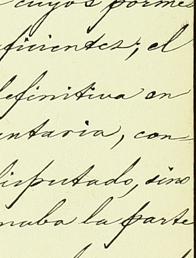 cuyos porme
ficientes; el
definitiva en
entaria, con
disputado, sino
naba la parte